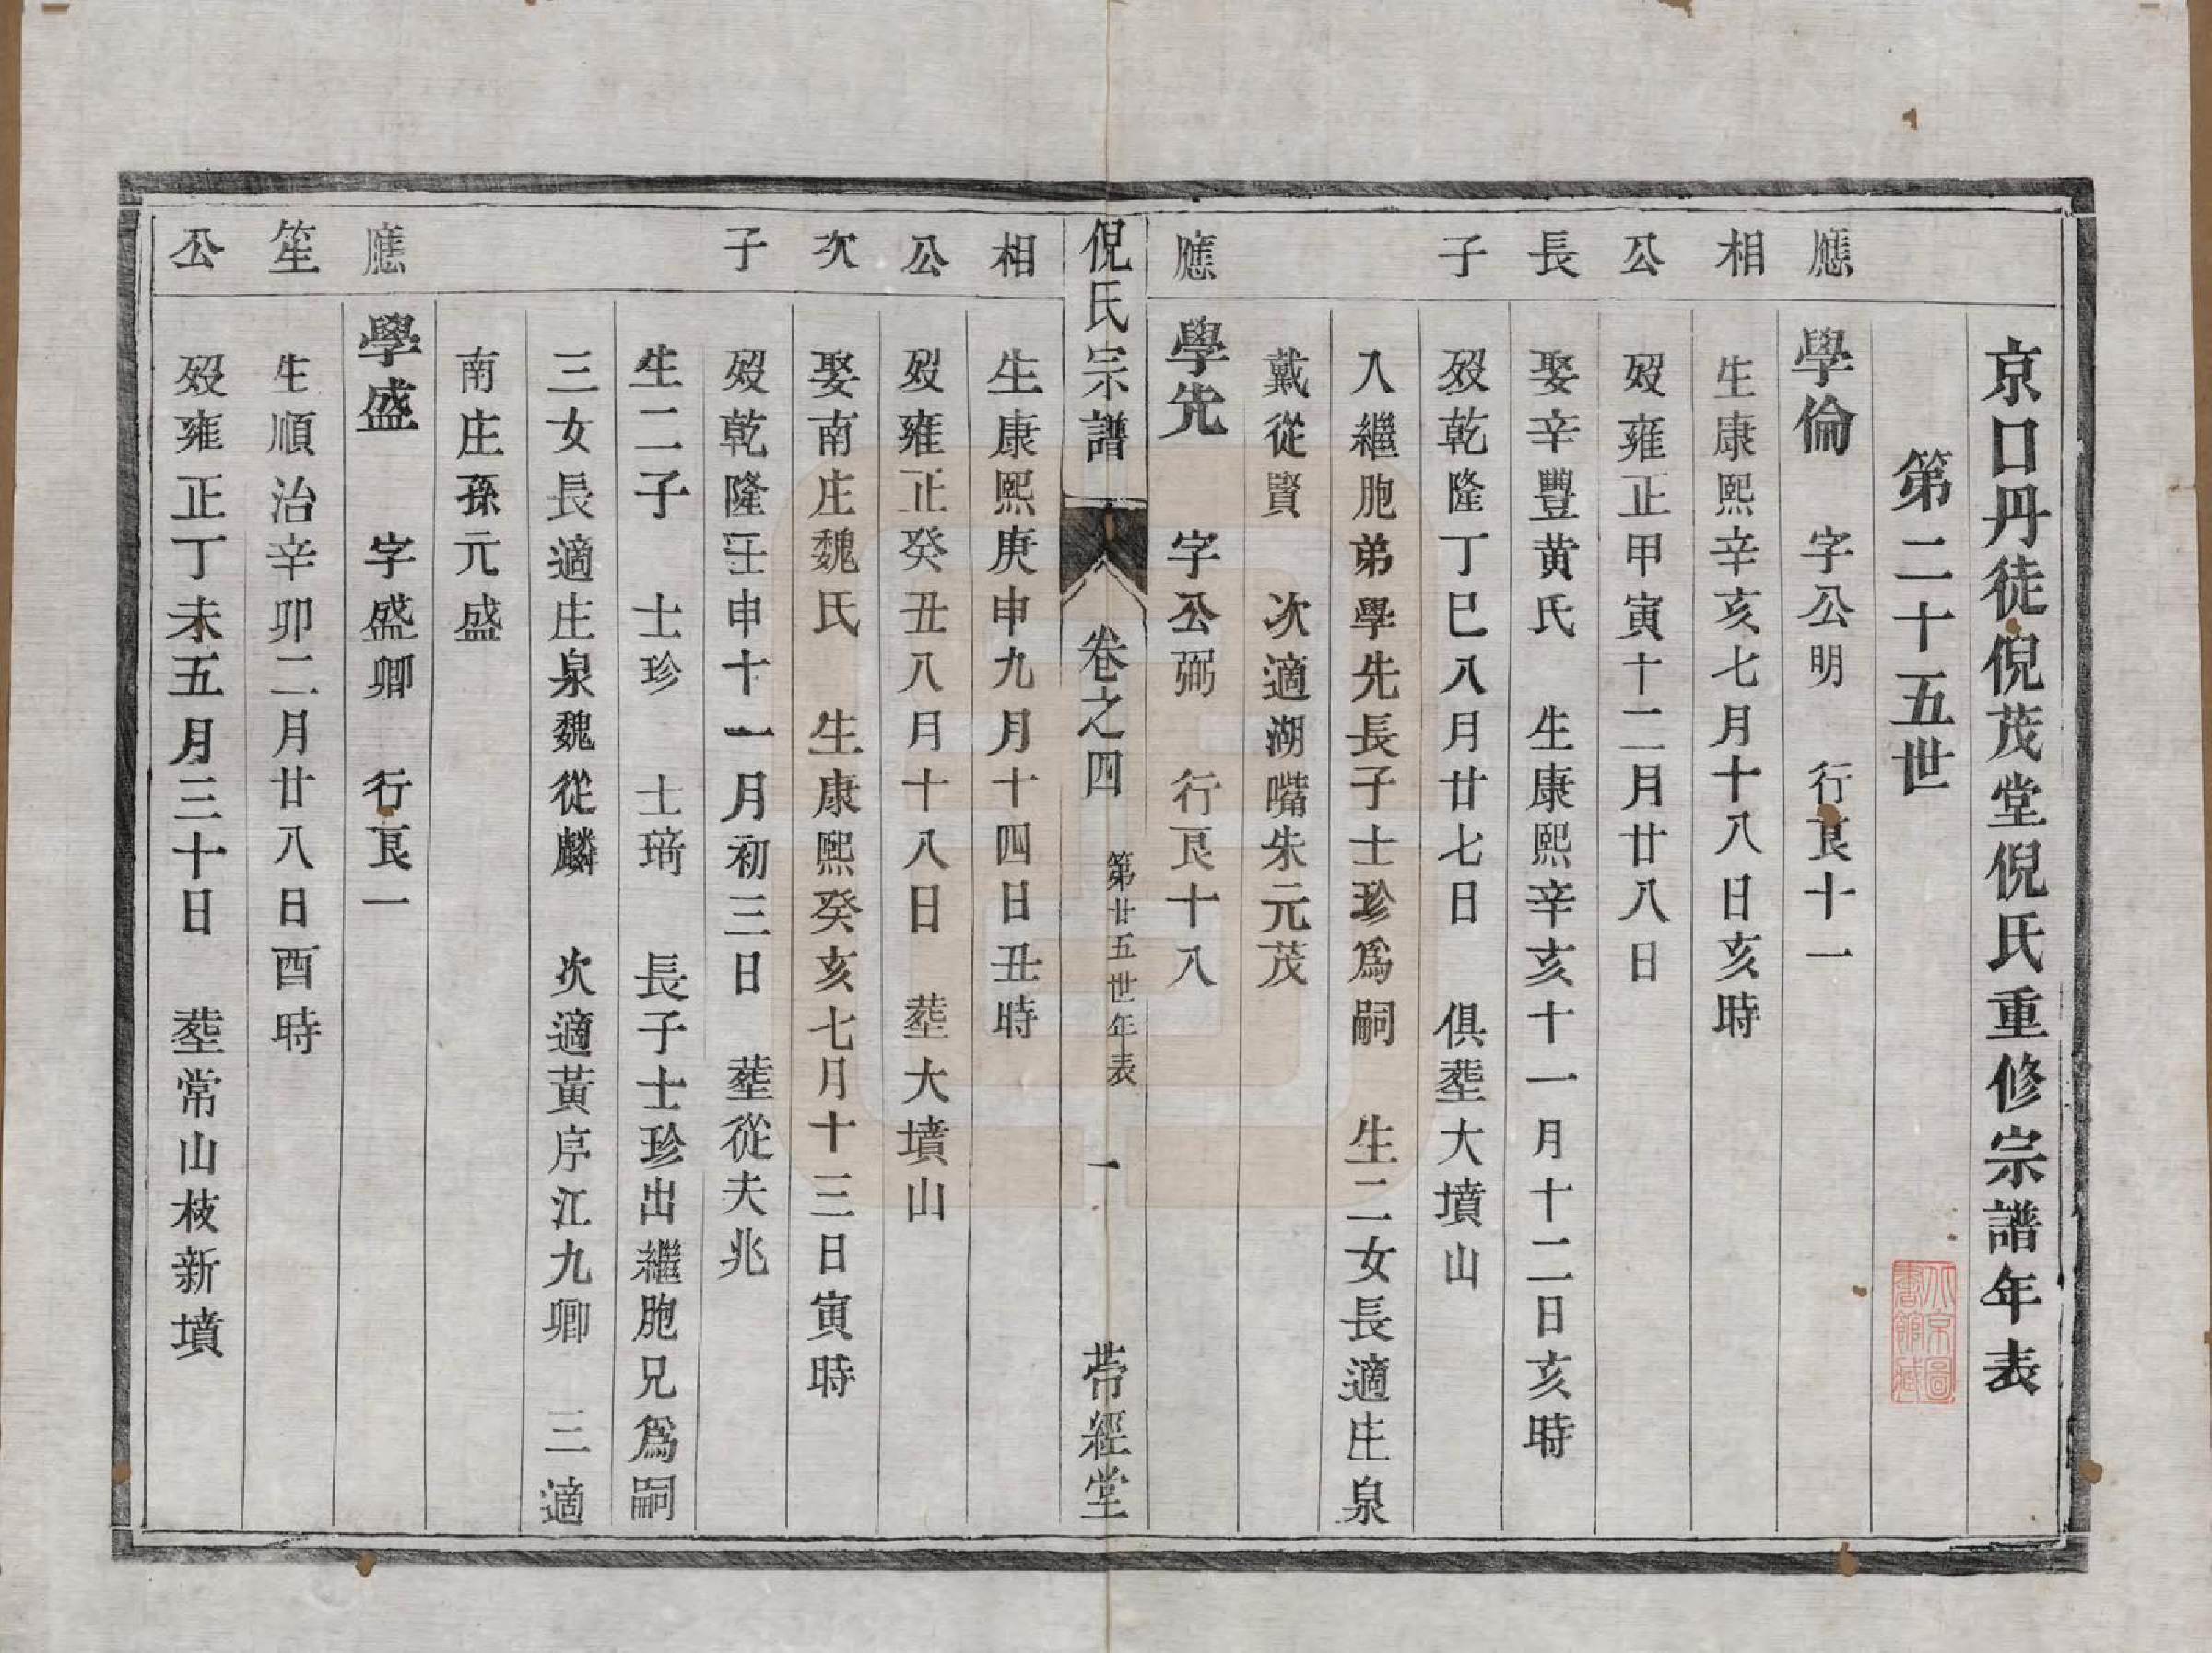 京口丹徒倪茂堂倪氏重修宗譜年表
第二十五世
應 學倫 字公明 行艮十一
相 生康熙辛亥七月十八日亥時
公 歿雍正甲寅十二月廿八日
長 娶辛豐黃氏 生康熙辛亥十一月十二日亥時
子 歿乾隆丁巳八月廿七日 俱塟大墳山
入繼胞弟學先長子士珍爲嗣 生二女長適庄泉
戴從賢 次適湖嘴朱元茂
應 學先 字公弼 行艮十八
倪氏宗譜 卷之四 第廿五世年表 一 帶經堂
相 生康熙庚申九月十四日丑時
公 歿雍正癸丑八月十八日 塟大墳山
次 娶南庄魏氏 生康熙癸亥七月十三日寅時
子 歿乾隆壬申十一月初三日 塟從夫兆
生二子 士珍 士琦 長子士珍出繼胞兄爲嗣
三女長適庄泉魏從麟 次適黃序江九卿 三適
南庄孫元盛
應 學盛 字盛卿 行艮一
笙 生順治辛卯二月廿八日酉時
公 歿雍正丁未五月三十日 塟常山枝新墳
北京圖書館藏